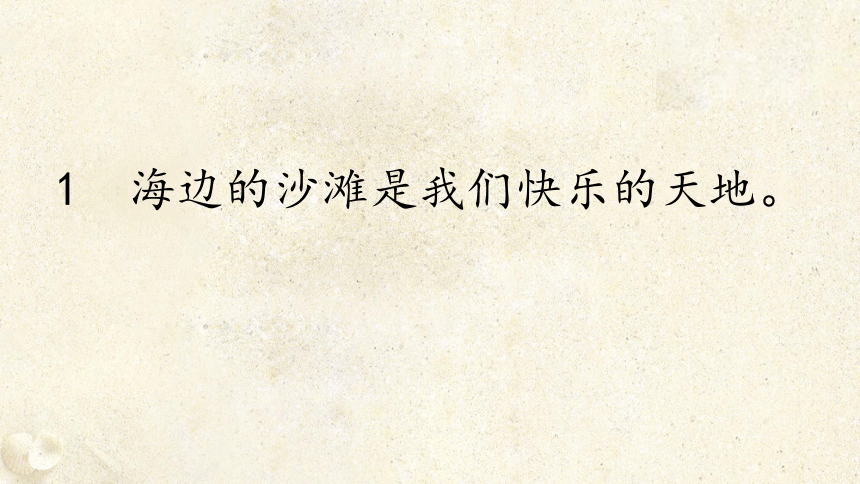 1 海边的沙滩是我们快乐的天地。